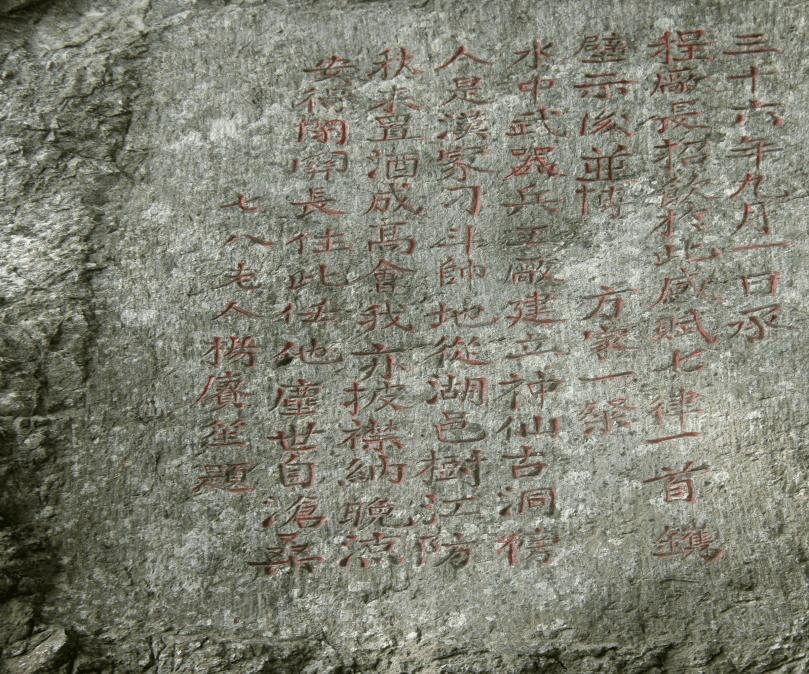 三十六年九月一日承
程廠長招飲於此感賦七律一首鐫
壁示後並博 方家一粲
水中武器兵工廠建立神仙古洞傍
人是漢家刁斗帥地從湖邑樹江防
秋來置酒成高會我亦披襟納晚涼
安得閑官長住此任他塵世自滄桑
七八老人楊賡笙題